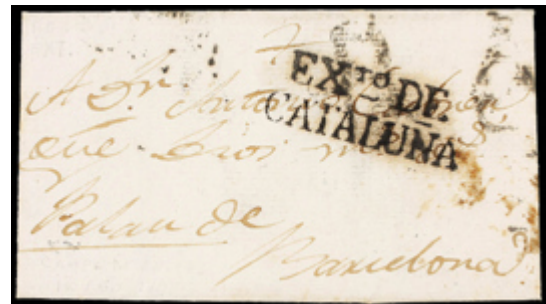 EXTO DE
CATALUÑA
A Dn Antonio
que Dios
Palau de
Barcelona